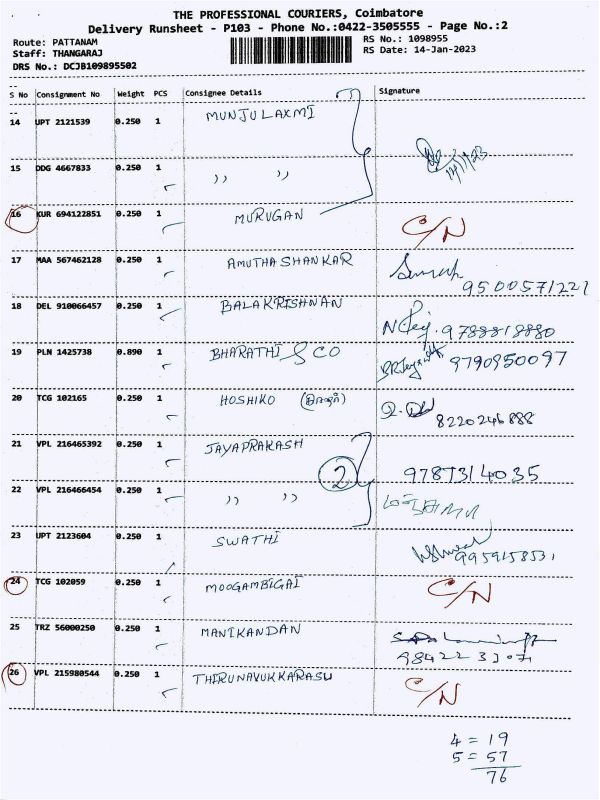 THE PROFESSIONAL COURIERS, Coimbatore
Delivery Runsheet - P103 - Phone No.:0422-3505555 - Page No.:2
Route: PATTANAM
Staff: THANGARAJ
DRS No.: DCJB109895502
RS No.: 1098955
RS Date: 14-Jan-2023
S No Consignment No Weight PCS Consignee Details Signature
14 UPT 2121539 0.250 1 MUNJULAXMI
15 DDG 4667833 0.250 1 ,, ,,
16 KUR 694122851 0.250 1 MURUGAN C/N
17 MAA 567462128 0.250 1 AMUTHASHANKAR
9500571221
18 DEL 910066457 0.250 1 BALAKRISHNAN
9788818880
19 PLN 1425738 0.890 1 BHARATHI & CO 9790950097
20 TCG 102165 0.250 1 HOSHIKO
8220246888
21 VPL 216465392 0.250 1 JAYAPRAKASH
2
22 VPL 216466454 0.250 1 ,, ,,
23 UPT 2123604 0.250 1 SWATHI
24 TCG 102059 0.250 1 MOOGAMBIGAI C/N
25 TRZ 56000250 0.250 1 MANIKANDAN
26 VPL 215980544 0.250 1 THIRUNAVUKKARASU C/N
4 = 19
5 = 57
76